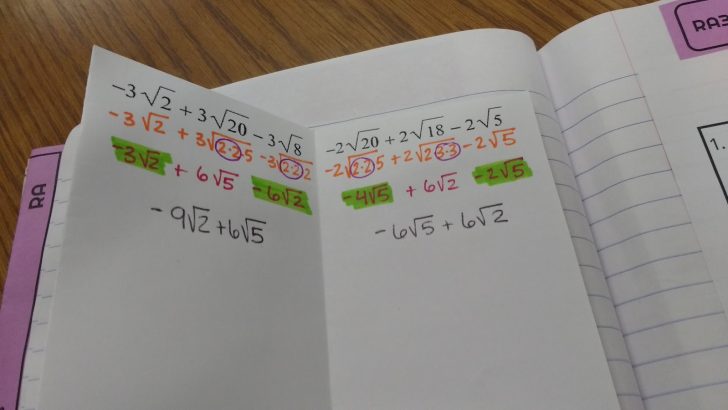 -3√2 + 3√20 - 3√8
-3√2 + 3√2·2·5 -3√2·2·2
-3√2 + 6√5 -6√2
-9√2+6√5
-2√20 + 2√18 - 2√5
-2√2·2·5 + 2√2·3·3 -2√5
-4√5 + 6√2 -2√5
-6√5 + 6√2
RA
1.